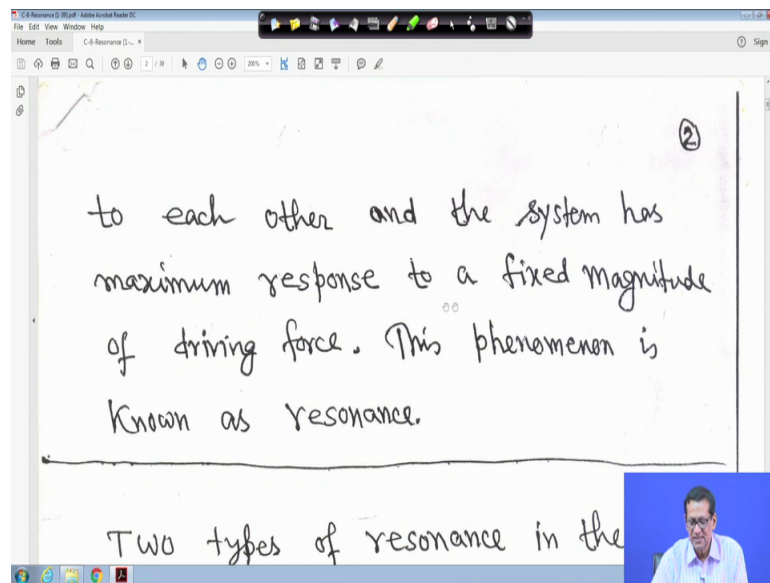 C-8-Resonance (1-39).pdf - Adobe Acrobat Reader DC
File Edit View Window Help
Home Tools C-8-Resonance (1-... ×
Sign
2 / 39
200%
2
to each other and the system has
maximum response to a fixed magnitude
of driving force. This phenomenon is
known as resonance.
Two types of resonance in the